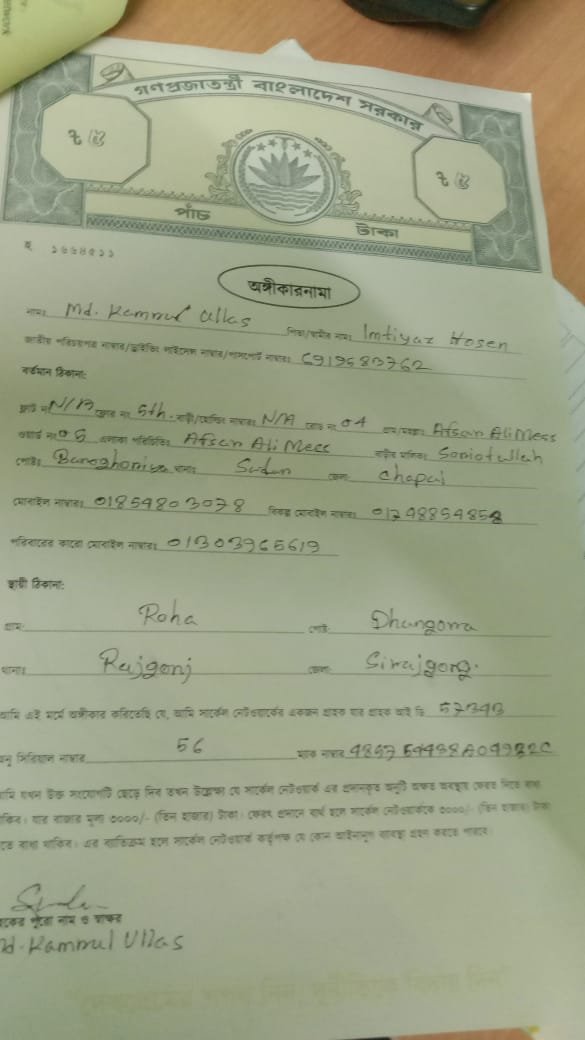 গণপ্রজাতন্ত্রী বাংলাদেশ সরকার
৳ ৫ ৳ ৫
পাঁচ টাকা
অঙ্গীকারনামা
নাম: Md. Kamrul Ullas পিতা/স্বামীর নাম: Imtiyaz Hosen
জাতীয় পরিচয়পত্র নাম্বার/ড্রাইভিং লাইসেন্স নাম্বার/পাসপোর্ট নাম্বার: 6919583762
বর্তমান ঠিকানা:
ফ্লাট নং N/A ফ্লোর নং 5th বাড়ী/হোল্ডিং নাম্বার: N/A রোড নং 04 গ্রাম/মহল্লা: Afsan Ali Mess
ওয়ার্ড নং 05 এলাকা পরিচিতি: Afsan Ali Mess বাড়ীর মালিক:
পোষ্ট: থানা: Sadar জেলা: Chapai
মোবাইল নাম্বার: 01854803078 বিকল্প মোবাইল নাম্বার:
পরিবারের কারো মোবাইল নাম্বার: 01303965619
স্থায়ী ঠিকানা:
গ্রাম: Roha পোষ্ট:
থানা: জেলা:
আমি এই মর্মে অঙ্গীকার করিতেছি যে, আমি সার্কেল নেটওয়ার্কের একজন গ্রাহক যার গ্রাহক আই ডি 57343
অনু সিরিয়াল নাম্বার 56 ম্যাক নাম্বার
আমি যখন উক্ত সংযোগটি ছেড়ে দিব তখন উল্লেখ্য যে সার্কেল নেটওয়ার্ক এর প্রদানকৃত অনুটি অক্ষত অবস্থায় ফেরত দিতে বাধ্য
থাকিব। যার বাজার মূল্য ৩০০০/- (তিন হাজার) টাকা। ফেরৎ প্রদানে ব্যর্থ হলে সার্কেল নেটওয়ার্ককে ৩০০০/- (তিন হাজার) টাকা
দিতে বাধ্য থাকিব। এর ব্যতিক্রম হলে সার্কেল নেটওয়ার্ক কর্তৃপক্ষ যে কোন আইনানুগ ব্যবস্থা গ্রহণ করতে পারবে।
গ্রাহকের পুরো নাম ও স্বাক্ষর
Md. Kamrul Ullas